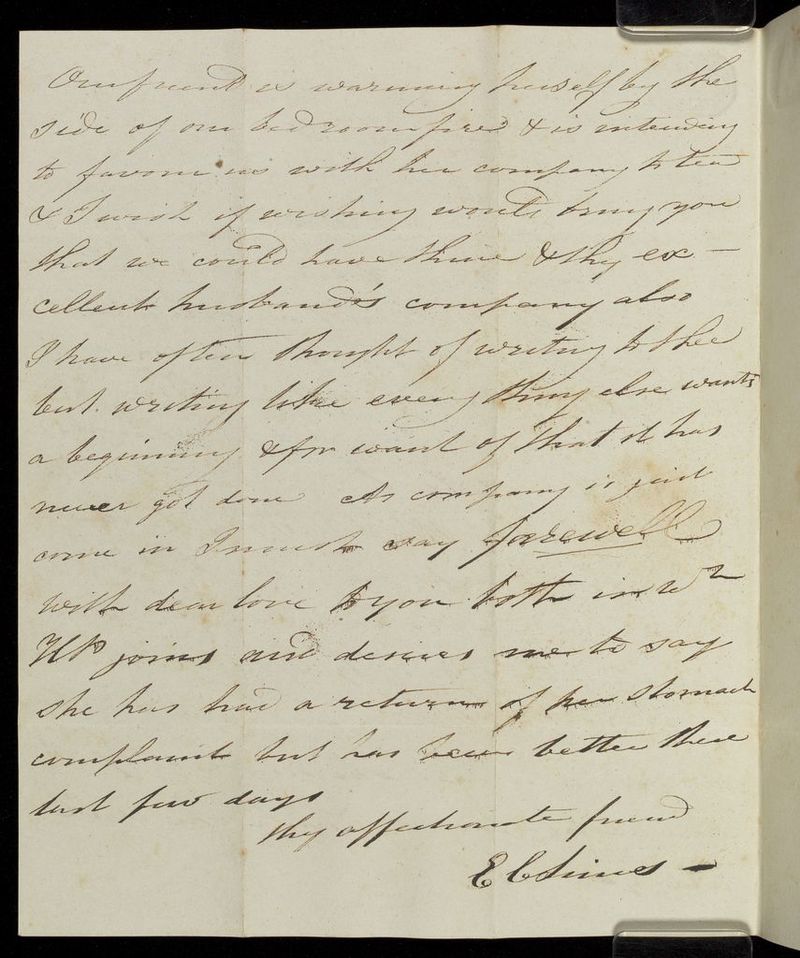 Our friend is warming herself by the
side of our bedroom fire & is intending
to favour us with her company to tea
& I wish if wishing would bring you
that we could have thine & thy ex-
cellent husband's company also
I have often thought of writing to thee
but writing like every thing else wants
a beginning & for want of that it has
never got done As company is just
come in I must say farewell
with dear love to you both in wh
HP joins and desires me to say
she has had a return of her stomach
complaint but has been better these
last few days
thy affectionate friend
E C